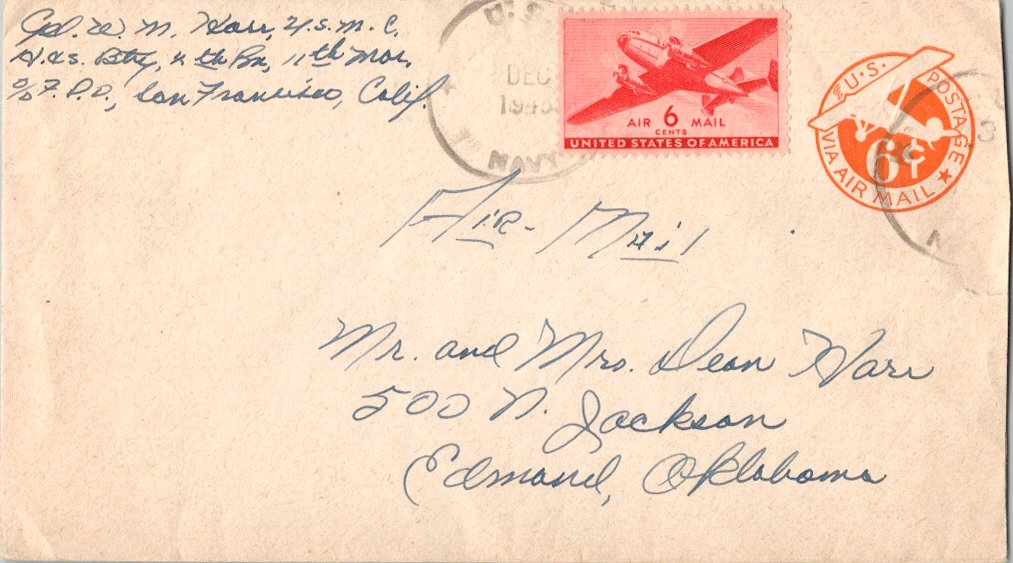 Cpl. W. M. Harr, U.S.M.C.
H.&S. Btry, 4th Bn, 11th Mar.
c/o F.P.O., San Francisco, Calif.
U.S.
DEC
1943
NAVY
AIR 6 MAIL
CENTS
UNITED STATES OF AMERICA
U.S. POSTAGE
6¢
VIA AIR MAIL
Air-Mail
Mr. and Mrs. Dean Harr
500 N. Jackson
Edmond, Oklahoma